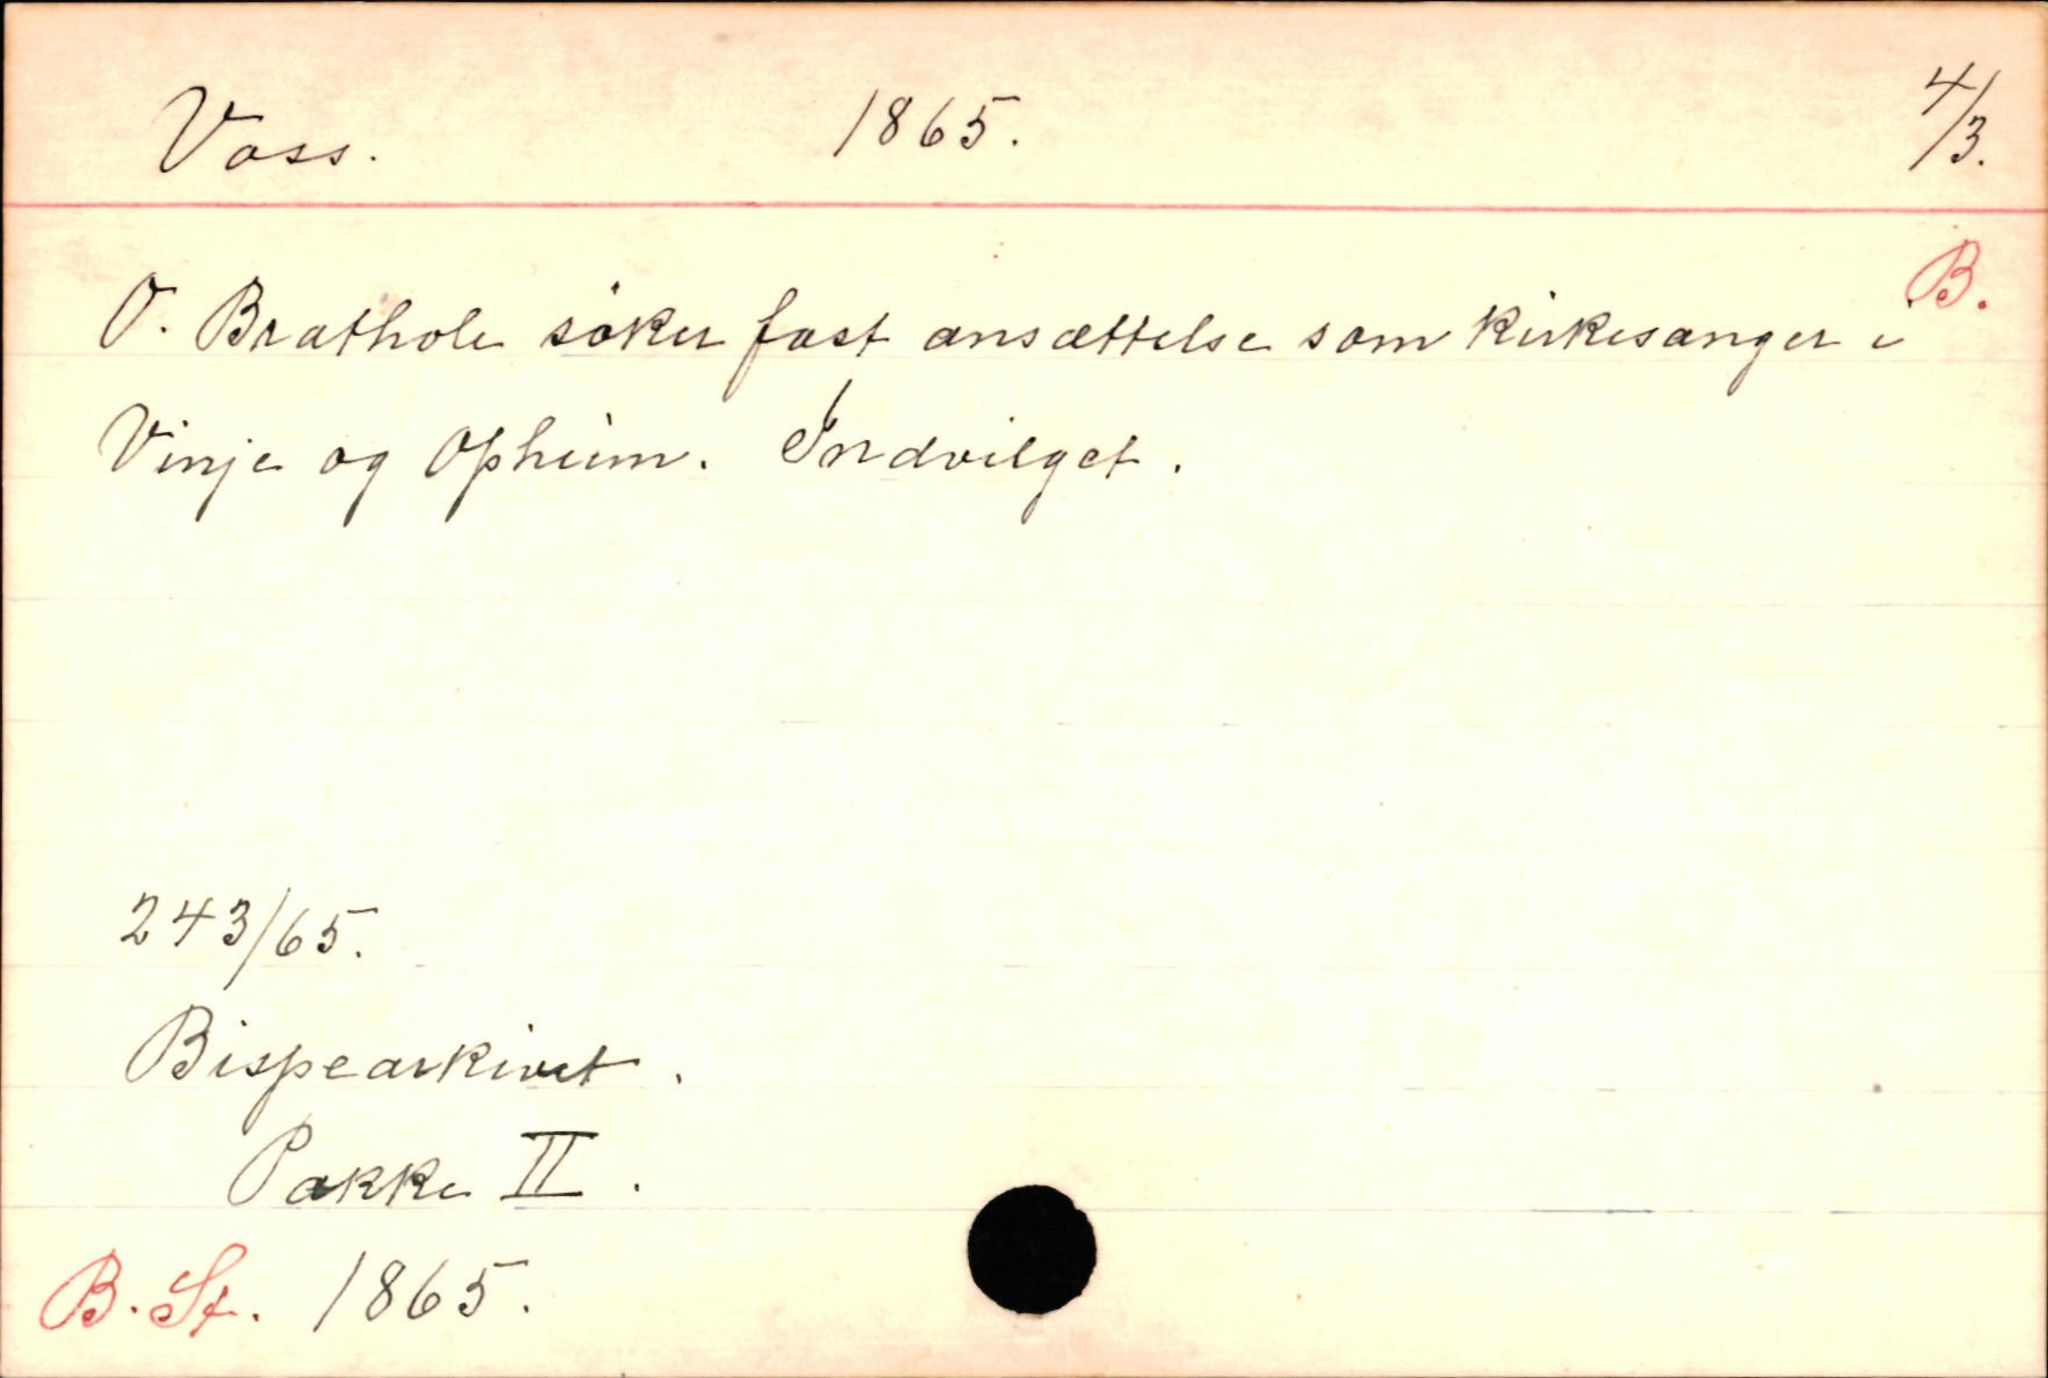 Voss. 1865. 4/3.
B.
O. Brathole söker fast ansættelse som kirkesanger i
Vinje og Opheim. Indvilget.
243/65.
Bispearkivet.
Pakke II.
B. St. 1865.